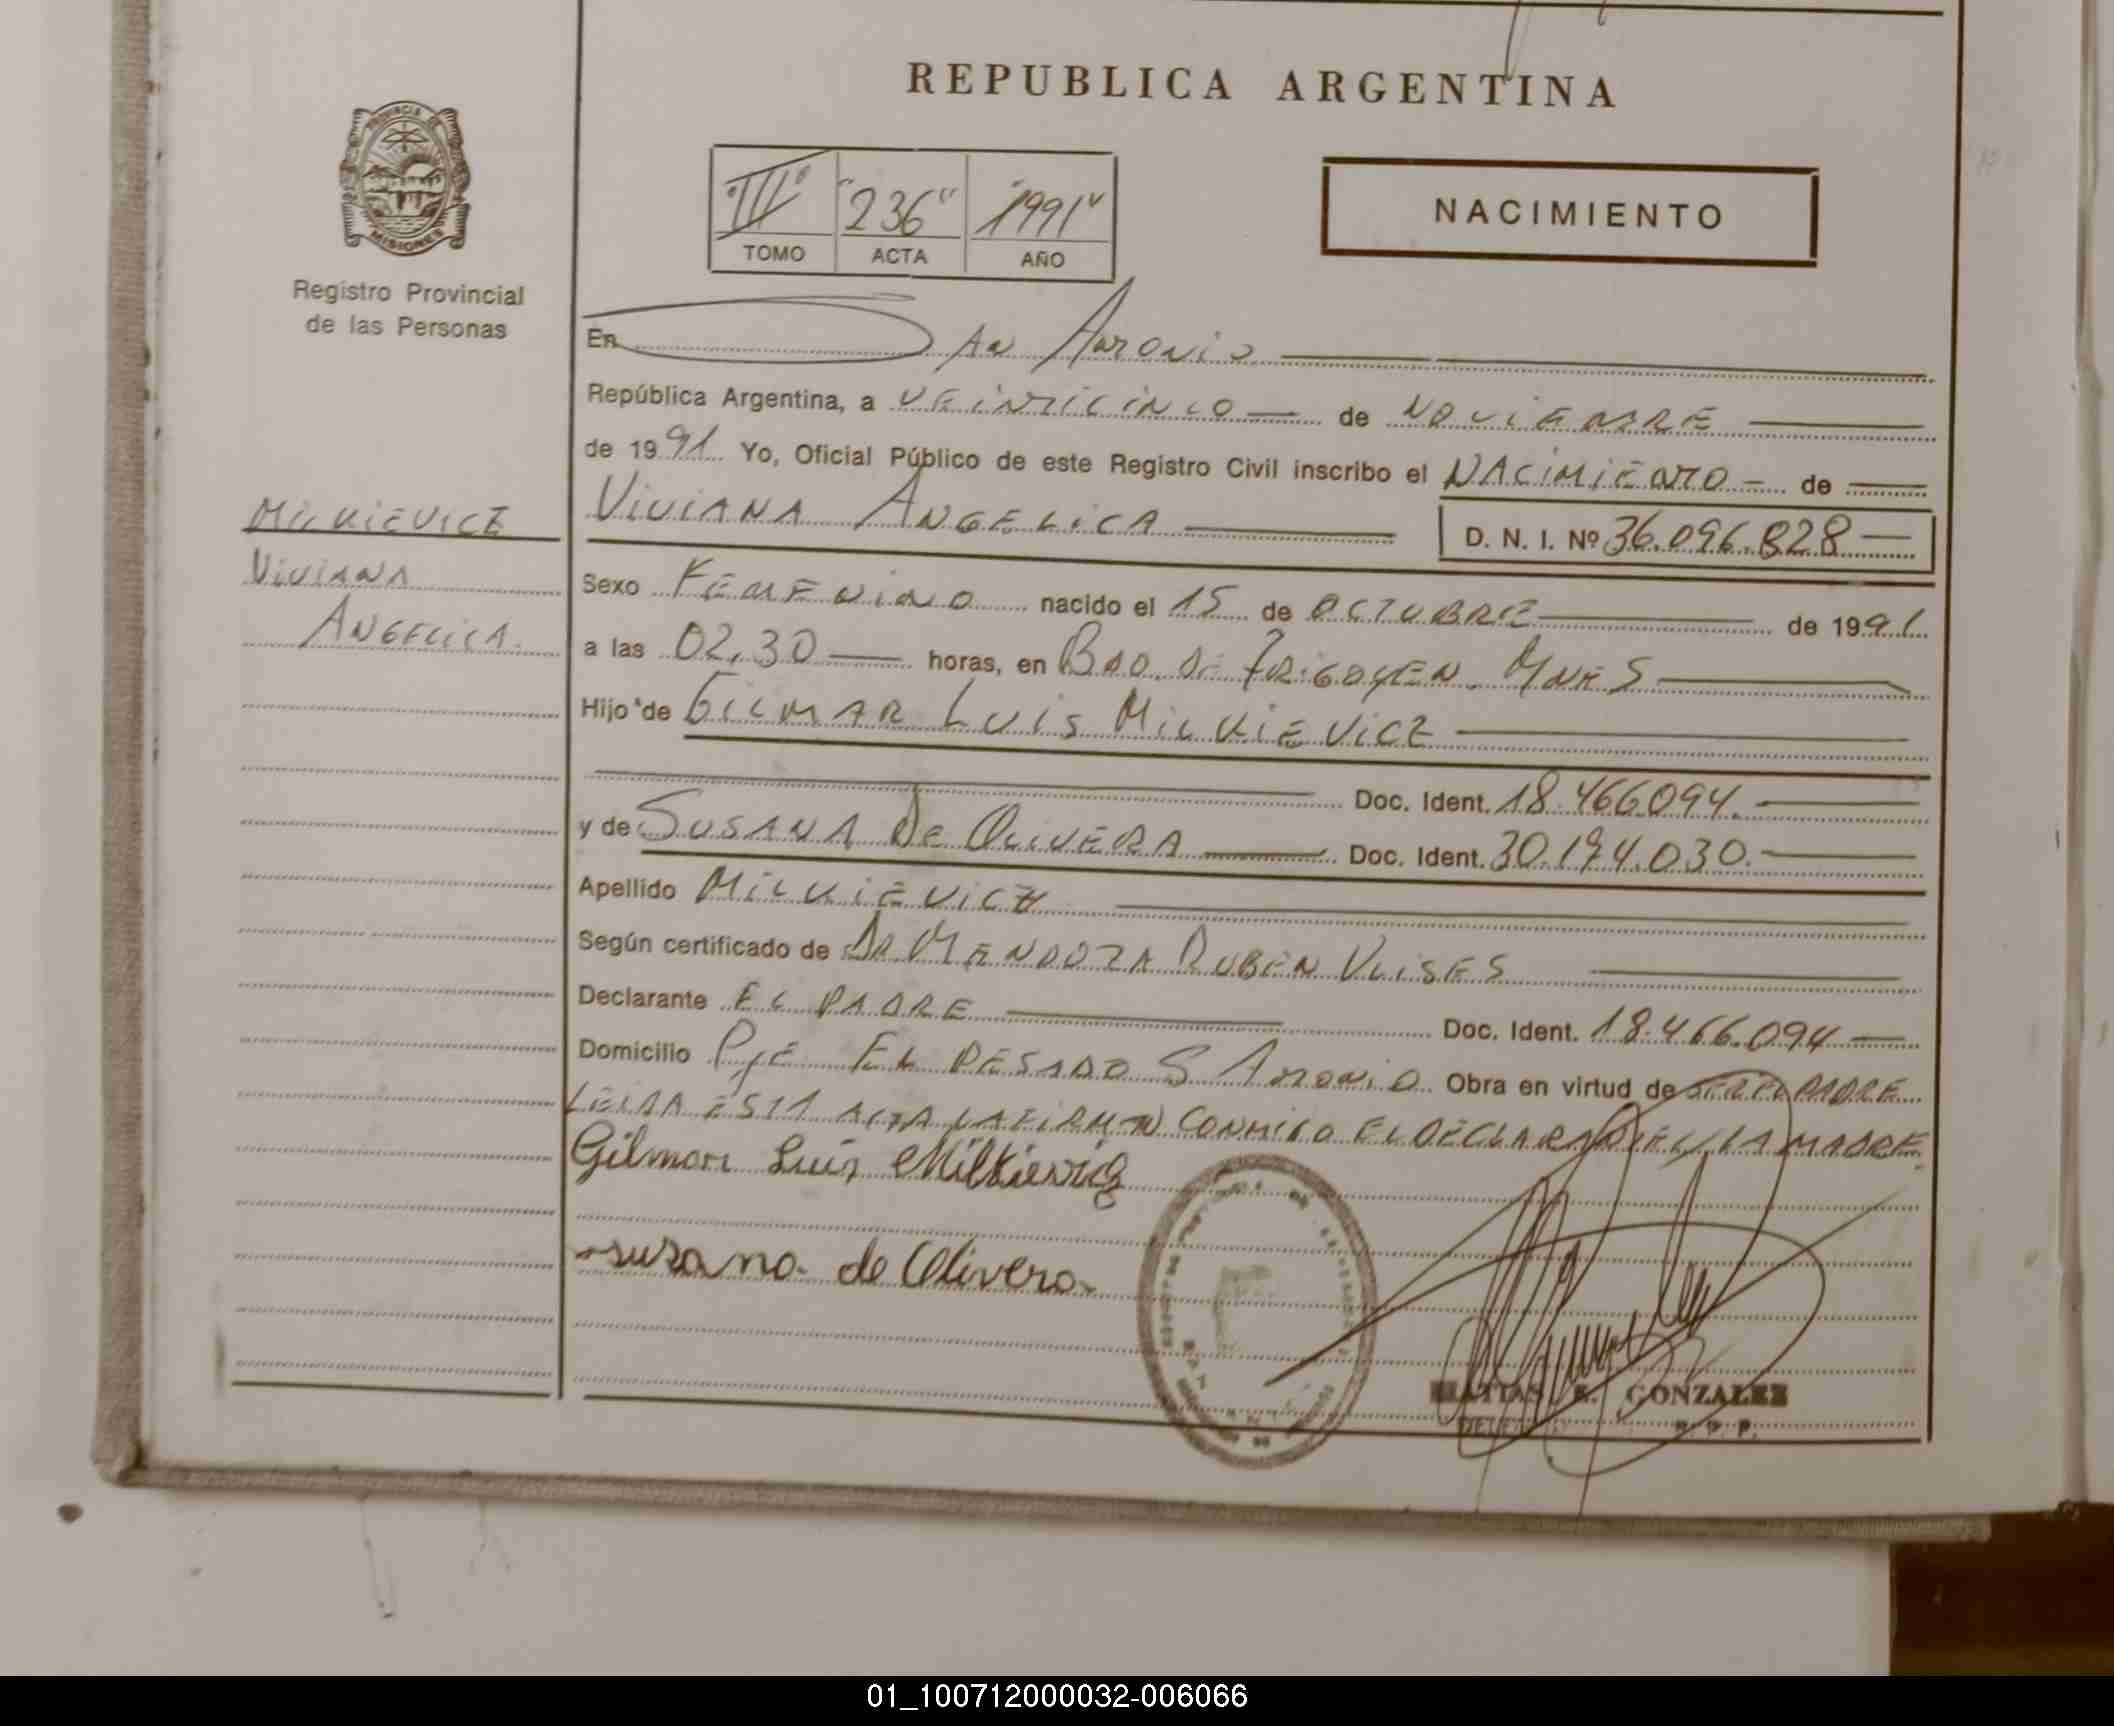 REPUBLICA ARGENTINA
PROVINCIA DE
MISIONES
Registro Provincial
de las Personas
"III" "236" "1991"
TOMO ACTA AÑO
NACIMIENTO
En San Antonio
República Argentina, a VEINTICINCO de NOVIEMBRE
de 1991 Yo, Oficial Público de este Registro Civil inscribo el NACIMIENTO de
VIVIANA ANGELICA D. N. I. Nº 36.096.828
MILKIEVICZ
VIVIANA
ANGELICA.
Sexo FEMENINO nacido el 15 de OCTUBRE de 1991
a las 02,30 horas, en BDO. DE IRIGOYEN. MNES
Hijo de GILMAR LUIS MILKIEVICZ
Doc. Ident. 18.466.094.
y de SUSANA DE OLIVERA Doc. Ident. 30.194.030.
Apellido MILKIEVICZ
Según certificado de DR MENDOZA RUBEN ULISES
Declarante EL PADRE Doc. Ident. 18.466.094
Domicilio PJE EL PESADO S ANTONIO Obra en virtud de SER EL PADRE
LEIDA ESTA ACTA LA FIRMAN CONMIGO EL DECLARANTE Y LA MADRE.
Gilmar Luis Milkievicz
susana de Olivera
MATIAS GONZALEZ
R. P. P.
01_100712000032-006066